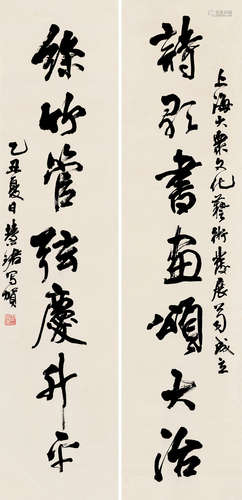 上海大眾文化藝術發展成立
詩歌書畫頌大治
絲竹管弦慶升平
乙丑夏日慧珺写